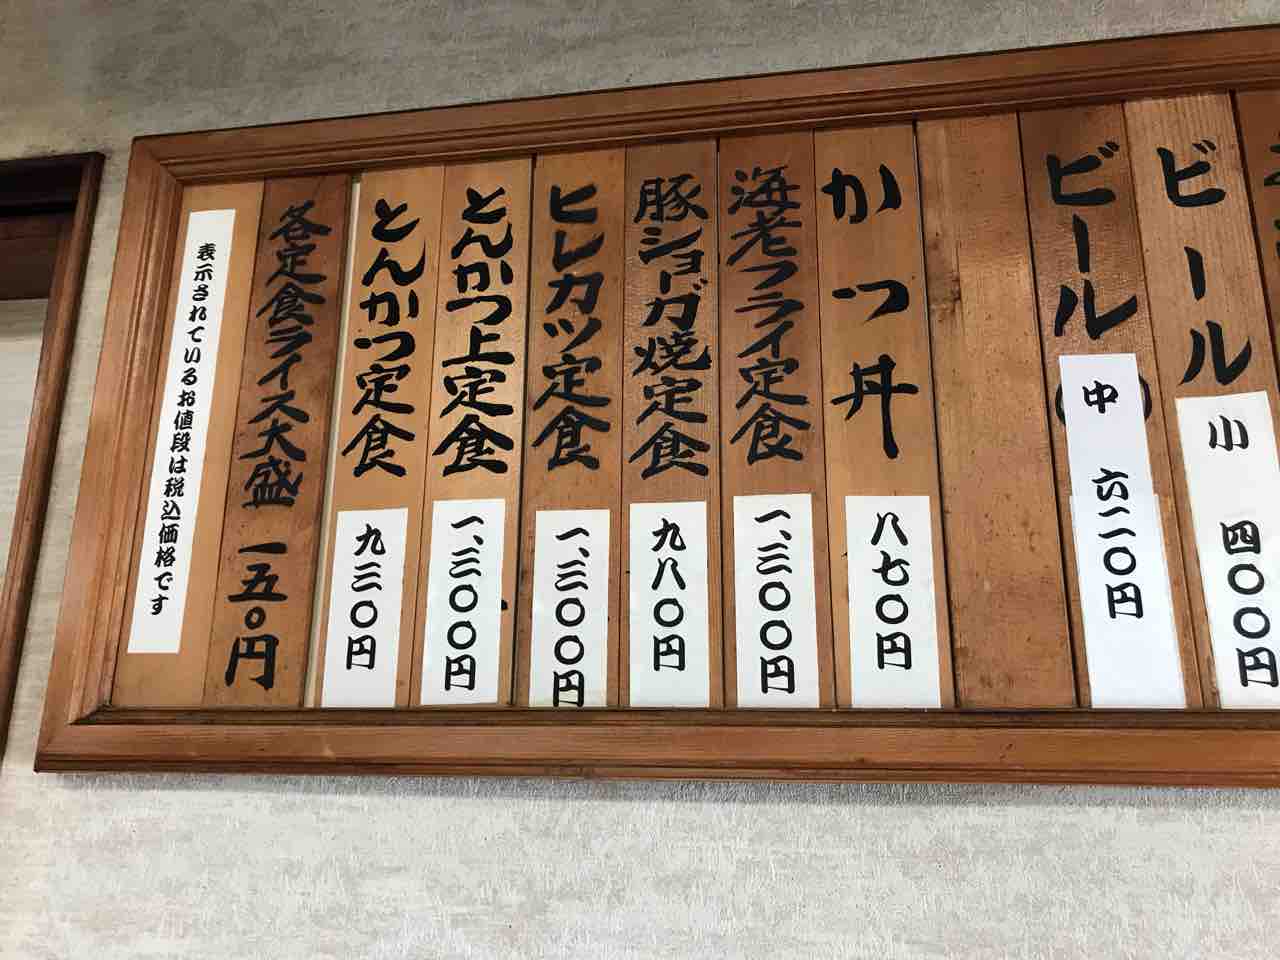 ビール
小 四〇〇円
ビール
中 六二〇円
かつ丼
八七〇円
海老フライ定食
一、三〇〇円
豚ショーガ焼定食
九八〇円
ヒレカツ定食
一、三〇〇円
とんかつ上定食
一、三〇〇円
とんかつ定食
九三〇円
各定食ライス大盛 一五〇円
表示されているお値段は税込価格です